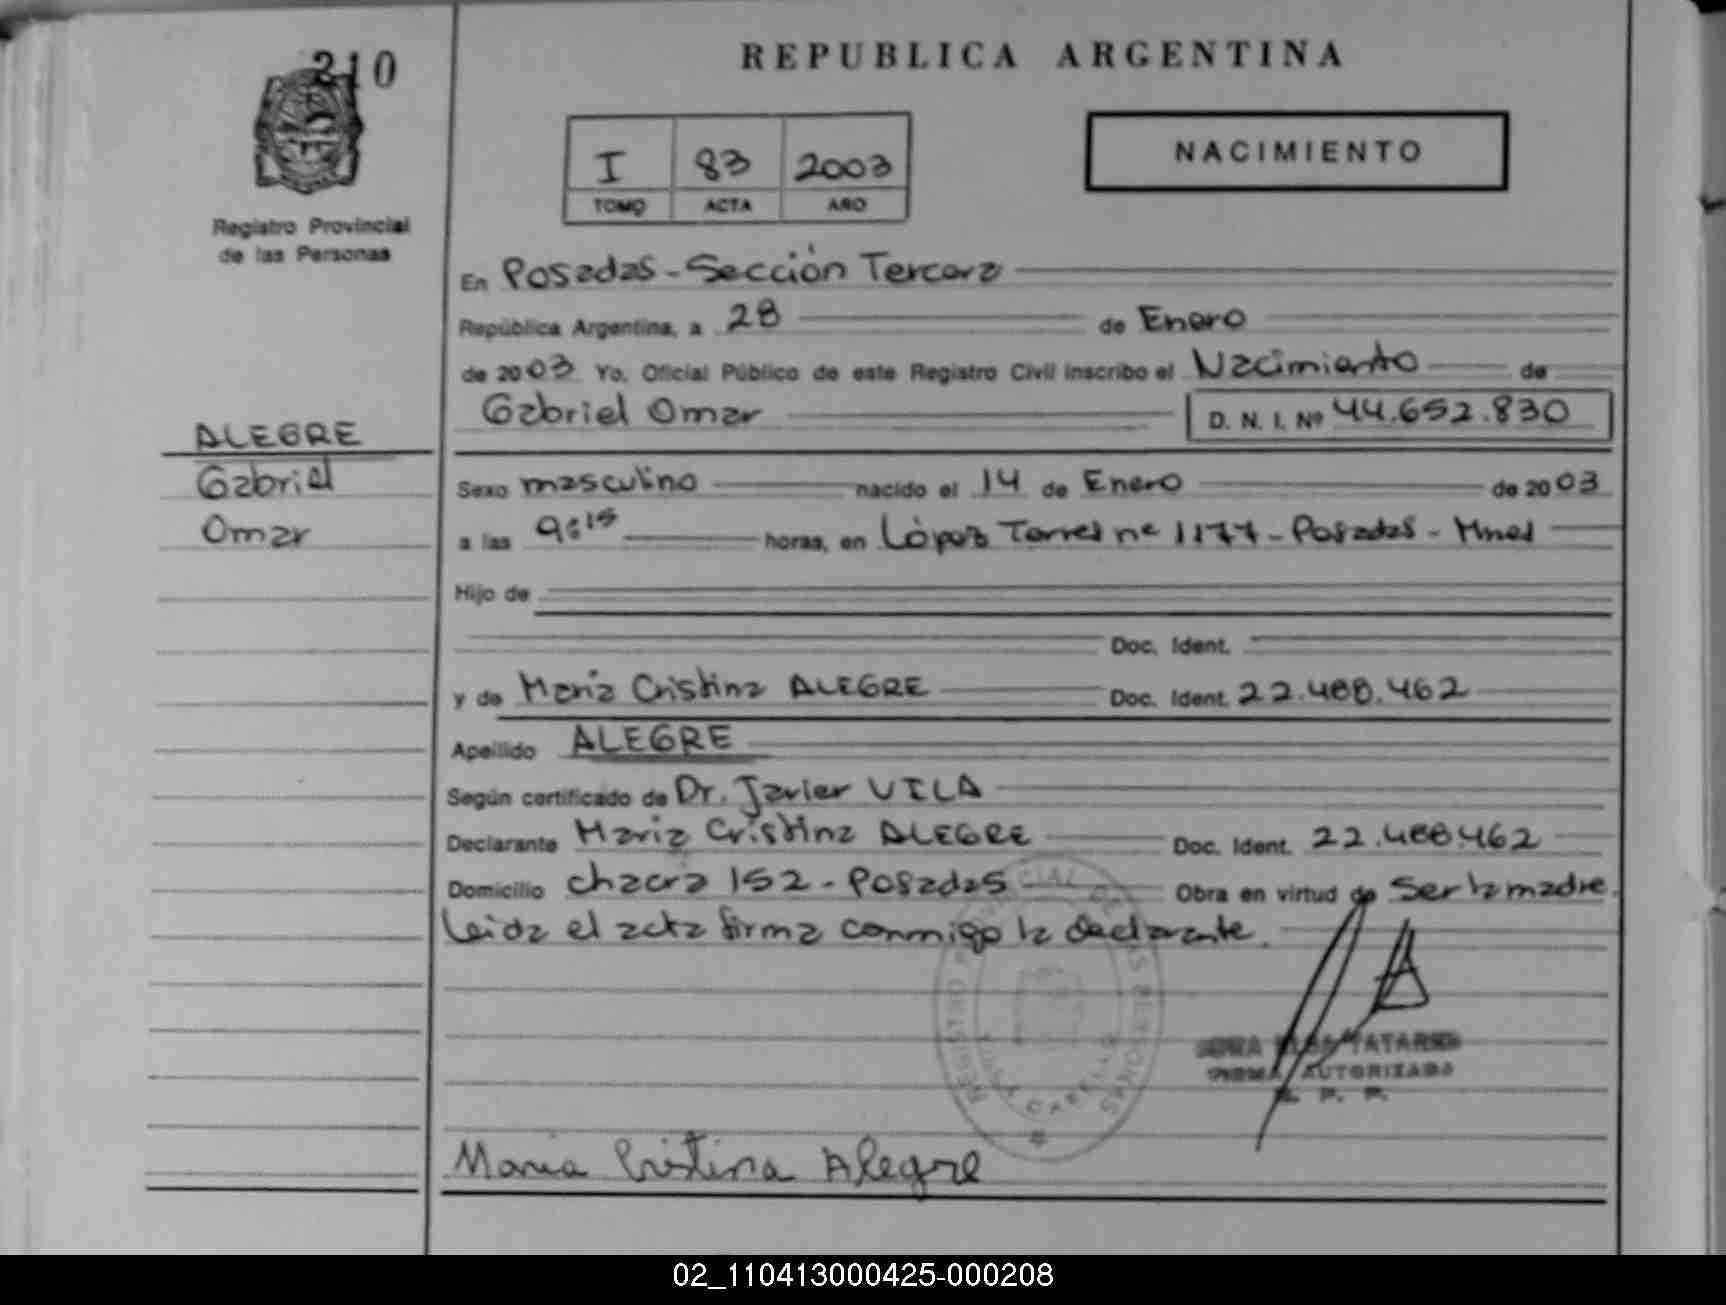 210
REPUBLICA ARGENTINA
I 83 2003
TOMO ACTA AÑO
NACIMIENTO
Registro Provincial
de las Personas
En Posadas - Sección Tercera
República Argentina, a 28 de Enero
de 2003 Yo, Oficial Público de este Registro Civil inscribo el Nacimiento de
Gabriel Omar D. N. I. Nº 44.652.830
ALEGRE
Gabriel
Omar
Sexo masculino nacido el 14 de Enero de 2003
a las 9:15 horas, en López Torres nº 1177 - Posadas - Mnes
Hijo de
Doc. Ident.
y de Maria Cristina ALEGRE Doc. Ident. 22.488.462
Apellido ALEGRE
Según certificado de Dr. Javier VILA
Declarante Maria Cristina ALEGRE Doc. Ident. 22.488.462
Domicilio chacra 152 - Posadas Obra en virtud de ser la madre.
leida el acta firma conmigo la declarante.
REGISTRO PROVINCIAL DE LAS PERSONAS
TATAREN
FIRMA AUTORIZADA
R. P. P.
Maria Cristina Alegre
02_110413000425-000208